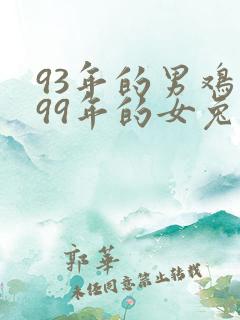 93年的男鸡
99年的女兔
郭华
未经同意禁止转载